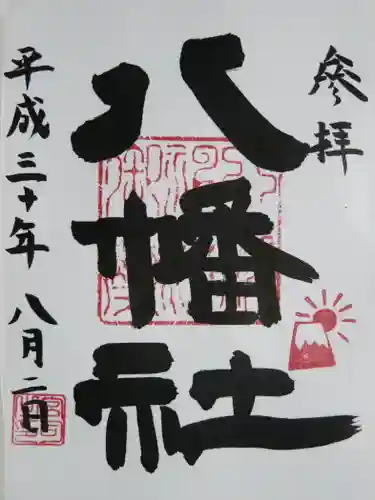 参拝
八幡社
平成三十年八月二日